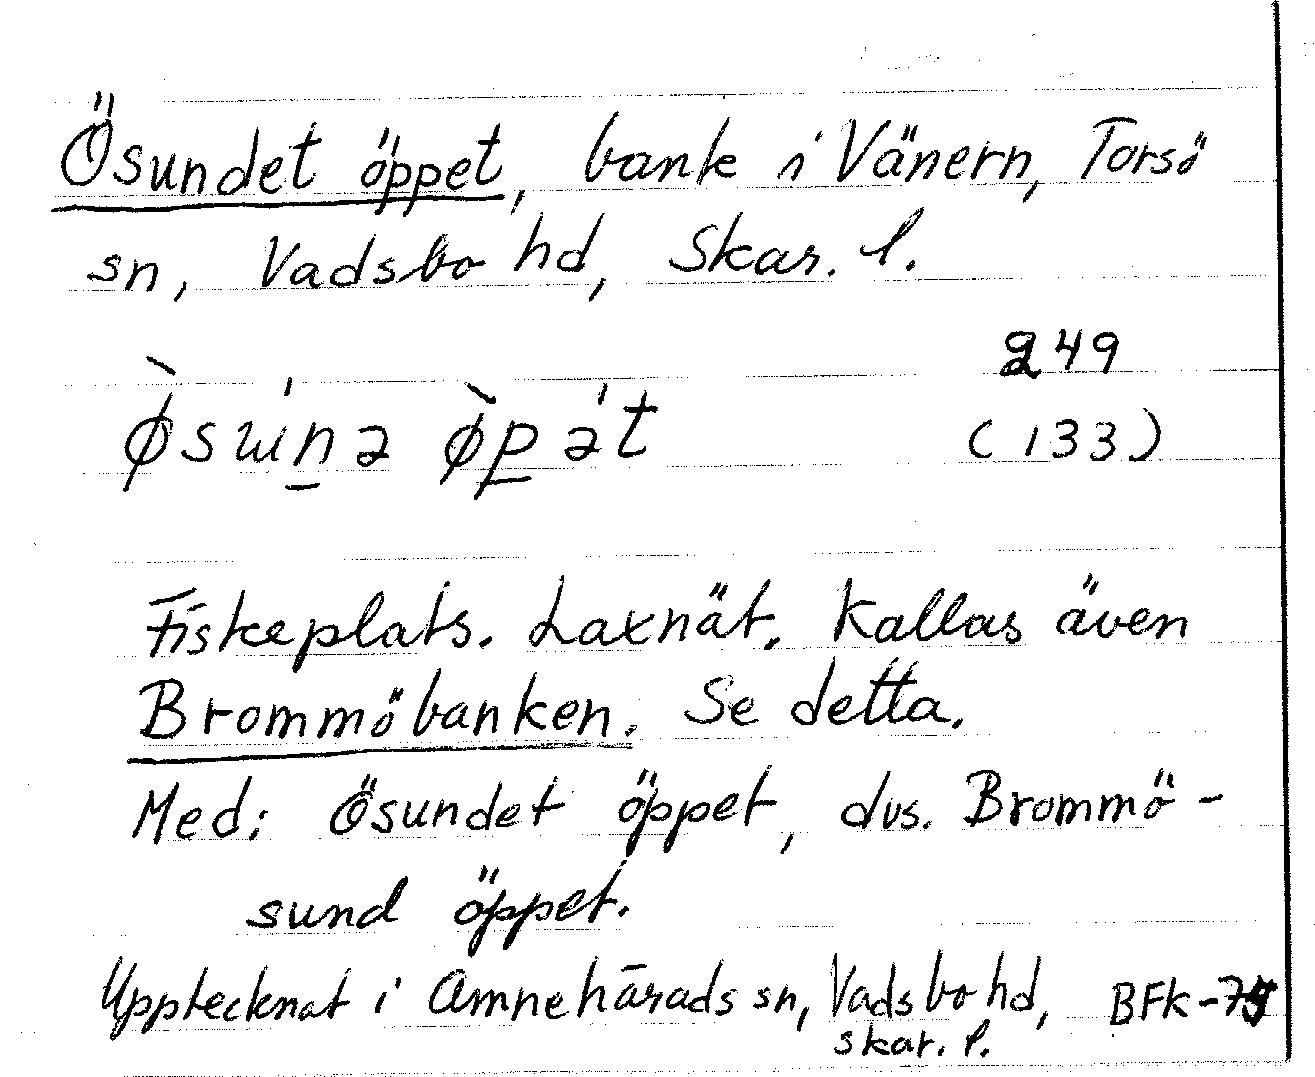 Ösundet öppet, bank i Vänern, Torsö
sn, Vadsbo hd, Skar. l.
249
ø̀sɯ́n̲ə ø̀p̲ə́t (133)
Fiskeplats. Laxnät. Kallas även
Brommöbanken. Se detta.
Med: Ösundet öppet, dvs. Brommö-
sund öppet.
Upptecknat i Amnehärads sn, Vadsbo hd, BFK-
skar. l.